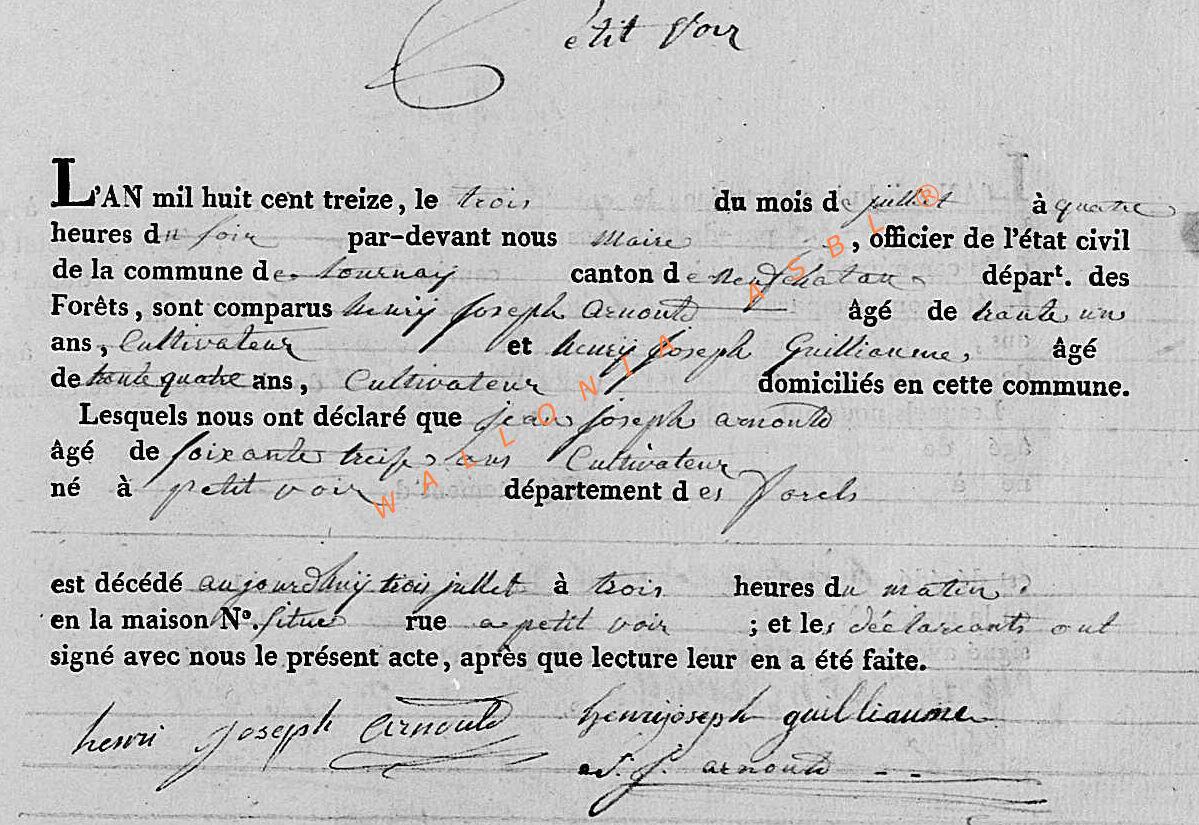 petit Voir
L'AN mil huit cent treize, le trois du mois de juillet à quatre
heures du soir par-devant nous Maire , officier de l'état civil
de la commune de tournay canton de neufchatau départ. des
Forêts, sont comparus henry joseph arnould âgé de trante un
ans, Cultivateur et henry joseph Guilliaume, âgé
de trante quatre ans, Cultivateur domiciliés en cette commune.
Lesquels nous ont déclaré que jean joseph arnould
âgé de soixante treise ans Cultivateur
né à petit voir département des forets
est décédé aujourdhuy trois jullet à trois heures du matin.
en la maison No. situé rue a petit voir ; et les déclarants ont
signé avec nous le présent acte, après que lecture leur en a été faite.
henri joseph arnould henrijoseph guilliaume
arnould
WALLONIA ASBL ®